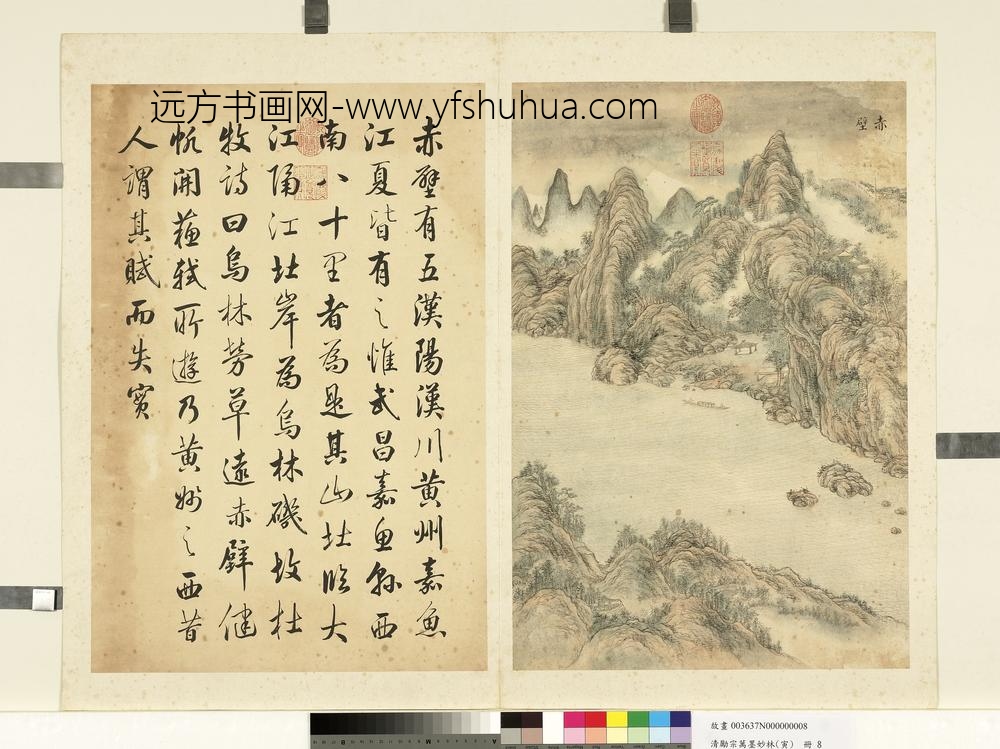 远方书画网-www.yfshuhua.com
赤壁
赤壁有五漢陽漢川黄州嘉魚
江夏皆有之惟武昌嘉魚縣西
南八十里者為是其山北臨大
江隔江北岸為烏林磯故杜
牧詩曰烏林芳草遠赤壁健
帆開蘇軾所遊乃黄州之西昔
人謂其賦而失實
故畫 003637N000000008
清勵宗萬墨妙林(寅) 冊 8